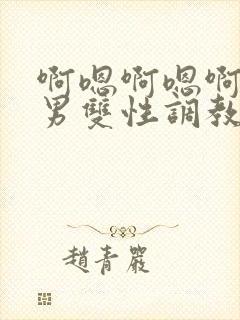 啊嗯啊嗯啊
男雙性調教
趙青嚴